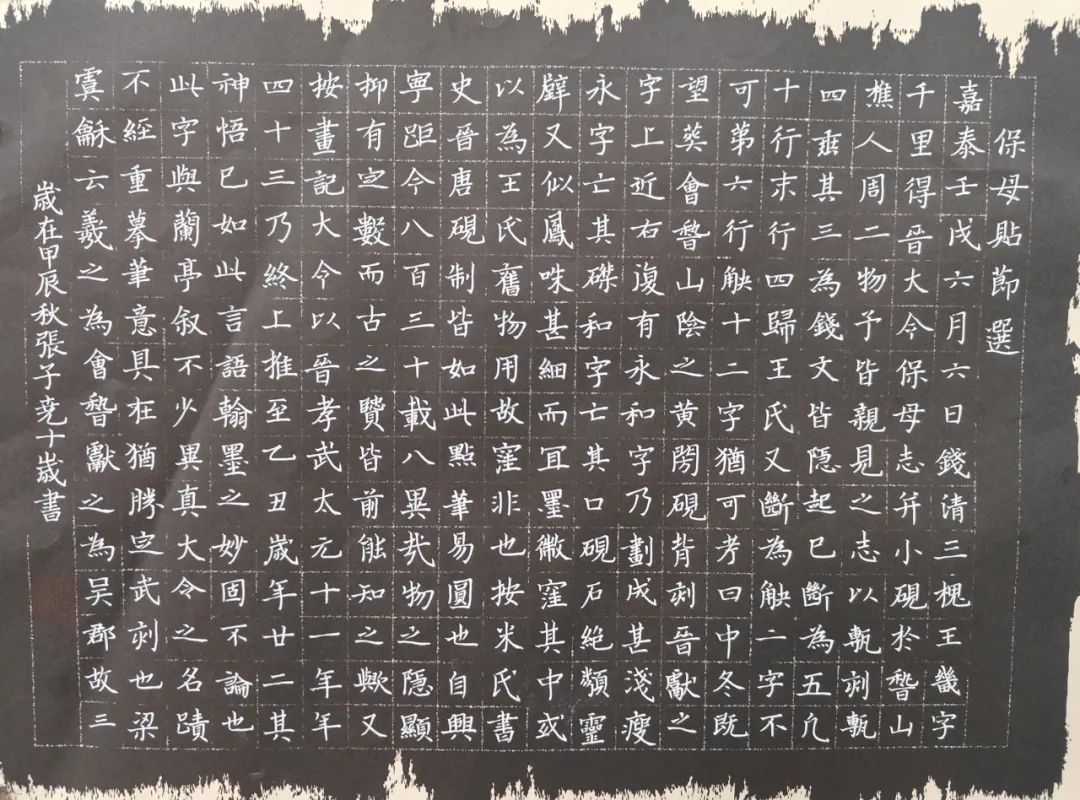 保母貼節選
嘉泰壬戌六月六日錢清三槐王畿字
千里得晉大令保母志并小硯於嵇山
樵人周二物予皆親見之志以甎刻甎
四垂其三為錢文皆隱起已斷為五凡
十行末行四歸王氏又斷為觖二字不
可弟六行觖十二字猶可考曰中冬既
望葬會嵇山陰之黃閍硯背刻晉獻之
字上近右復有永和字乃劃成甚淺瘦
永字亡其磔和字亡其口硯石絕類靈
壁又似鳳咮甚細而宜墨微窪其中或
以為王氏舊物用故窪非也按米氏書
史晉唐硯制皆如此點華易圓也自興
寧距今八百三十載八異哉物之隱顯
抑有定數而古之賢皆前能知之歟又
按畫記大令以晉孝武太元十一年年
四十三乃終上推至乙丑歲年廿二其
神悟已如此言語翰墨之妙固不論也
此字與蘭亭叙不少異真大令之名蹟
不經重摹筆意具在猶勝定武刻也梁
虞龢云羲之為會嵇獻之為吳郡故三
歲在甲辰秋張子堯十歲書